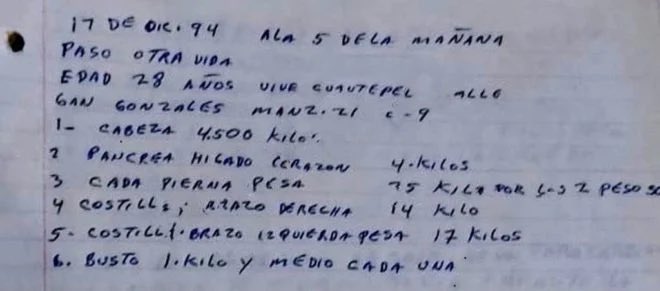 17 DE DIC. 94 ALA 5 DELA MAÑANA
PASO OTRA VIDA
EDAD 28 AÑOS VIVE CUAUTEPEL ALLE
SAN GONZALES MANZ. 21 C-9
1- CABEZA 4.500 KILO.
2 PANCREA HIGADO CERAZON 4.KILOS
3 CADA PIERNA PESA 25 KILO POR LOS 2 PESO 50
4 COSTILL; BRAZO DERECHA 14 KILO
5- COSTILL. BRAZO IZQUIERDA PESA 17 KILOS
6. BUSTO 1.KILO Y MEDIO CADA UNA